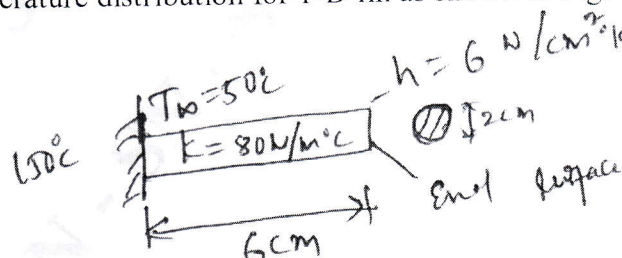 erature distribution for 1-D fin as
T∞=50℃
h=6 W/cm²°K
150°C
K=80W/m°C
2cm
End Surface
6cm